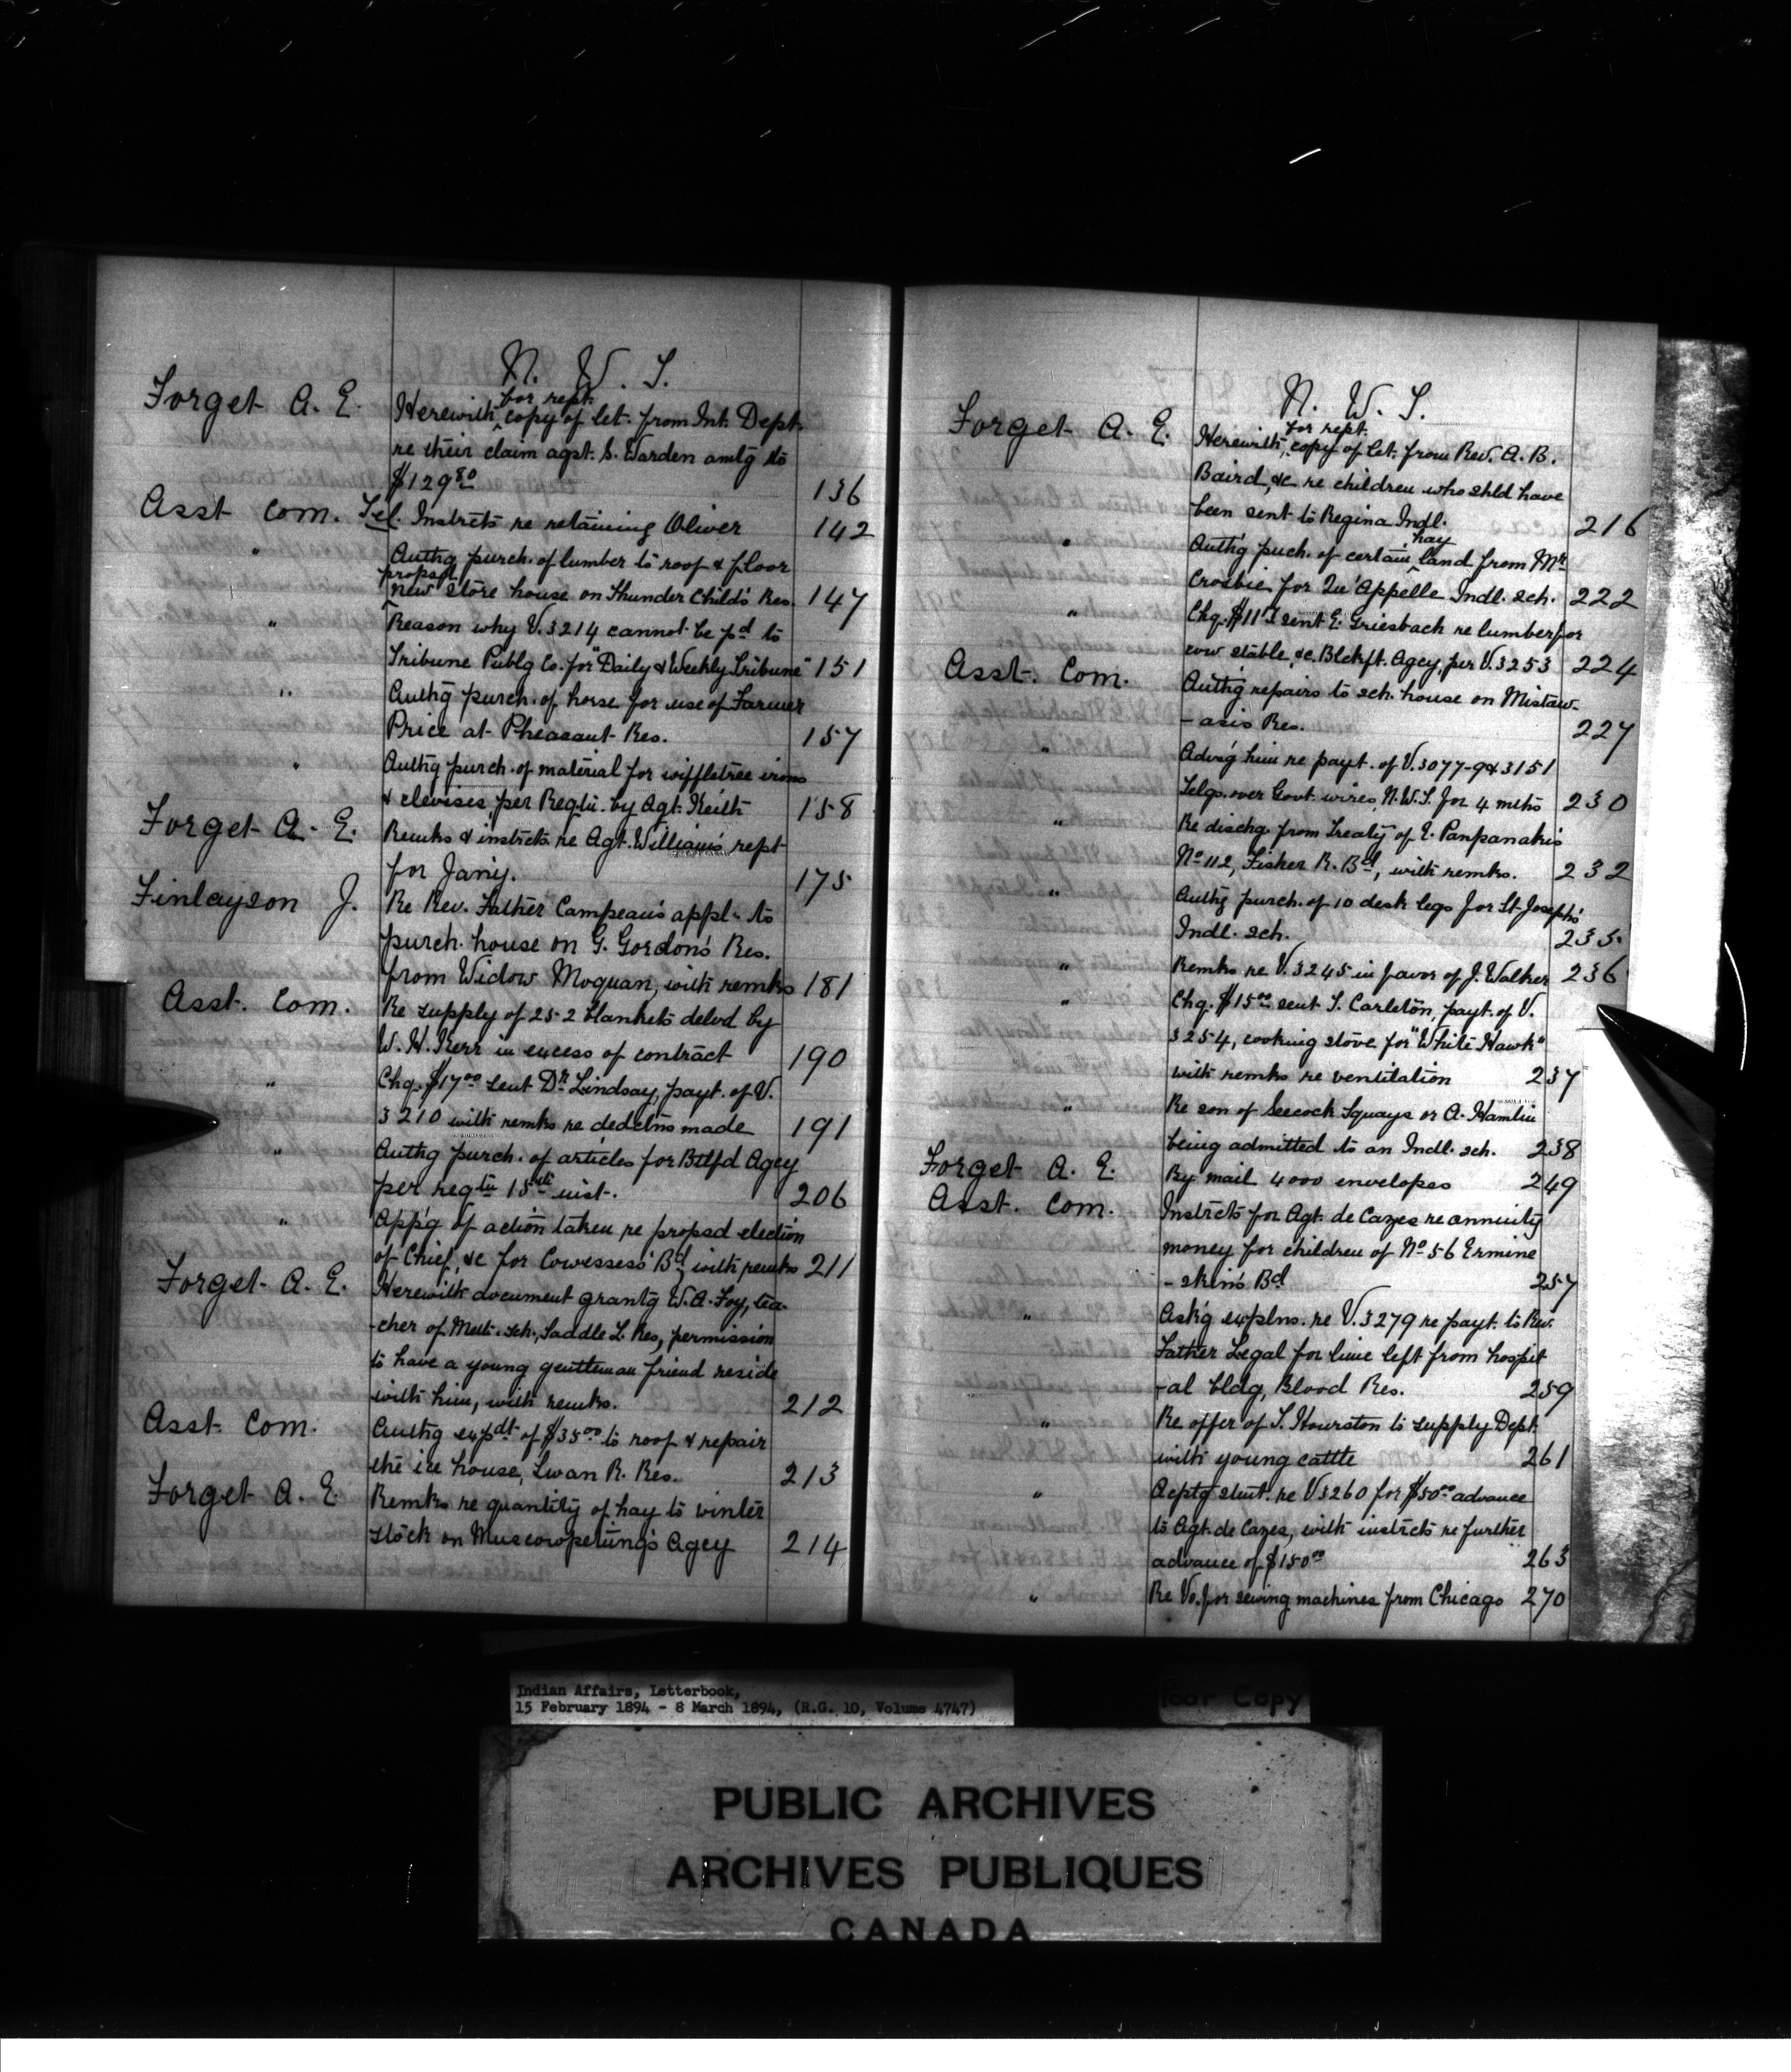 N. W. T.
Forget A. E. Herewith for rept. copy of let. from Int. Dept.
re their claim agst. S. Warden amtg to
$129 80 136
Asst Com. Tel. Instrcts re retaining Oliver 142
" Authg purch. of lumber to roof & floor
propsd new store house on Thunder Child's Res. 147
" Reason why V. 3214 cannot be pd to
Tribune Publg Co. for "Daily & Weekly Tribune" 151
" Authg purch. of horse for use of Farmer
Price at Pheasant Res. 157
" Authg purch. of material for wiffletree irons
& clevises per Reqtn. by Agt. Keith 158
Forget A. E. Remks & instrcts re Agt. William's rept
for Jany. 175
Finlayson J. Re Rev. Father Campeau's appl. to
purch. house on G. Gordon's Res.
from Widow Moquan, with remks 181
Asst. Com. Re supply of 252 blankets delvd by
W. H. Kerr in excess of contract 190
" Chq. $17 00 sent Dr. Lindsay, payt. of V.
3210 with remks re dedctns made 191
" Authg purch. of articles for Btlfd Agcy
per reqtn 15th inst. 206
" App'g of action taken re propsd election
of Chief, &c for Cowessess' Bd, with remks 211
Forget A. E. Herewith document grantg W. A. Foy, tea-
-cher of Meth. sch., Saddle L. Res, permission
to have a young gentleman friend reside
with him, with remks. 212
Asst. Com. Authg expdt of $35 00 to roof & repair
the ice house, Swan R. Res. 213
Forget A. E. Remks re quantity of hay to winter
stock on Muscowpetung's Agcy 214
N. W. T.
Forget A. E. Herewith for rept. copy of let. from Rev. A. B.
Baird, &c re children who shld have
been sent to Regina Indl. 216
" Auth'g puch. of certain hay land from Mr
Crosbie for Qu'Appelle Indl. sch. 222
" Chq. $11 sent E. Griesbach re lumber for
cow stable, &c. Blckft. Agcy, per V. 3253 224
Asst. Com. Auth'g repairs to sch. house on Mistaw-
-asis Res. 227
" Advs'g him re payt. of V. 3077-9 & 3151
Telgs. over Govt. wires, N. W. T. for 4 mths 230
" Re dischg. from Treaty of E. Panpanakis
No 112, Fisher R. Bd, with remks. 232
" Authg purch. of 10 desk legs for St. Joseph's
Indl. sch. 235
" Remks re V. 3245 in favor of J. Walker 236
" Chq. $15 00 sent T. Carleton, payt. of V.
3254, cooking stove for "White Hawk"
with remks re ventilation 237
" Re son of Seecock Squays or A. Hamlin
being admitted to an Indl. sch. 238
Forget A. E. By mail 4000 envelopes 249
Asst. Com. Instrcts for Agt. de Cazes re annuity
money for children of No 56 Ermine
-skin's Bd 257
" Ask'g explns. re V. 3279 re payt. to Rev.
Father Legal for lime left from hospit
-al bldg, Blood Res. 259
" Re offer of T. Hourston to supply Dept.
with young cattle 261
" Acptg stmt. re V 3260 for $50 00 advance
to Agt. de Cazes, with instrcts re further
advance of $150 00 263
" Re Vo. for sewing machines from Chicago 270
Indian Affairs, Letterbook,
15 February 1894 - 8 March 1894, (R.G. 10, Volume 4747)
Poor Copy
PUBLIC ARCHIVES
ARCHIVES PUBLIQUES
CANADA